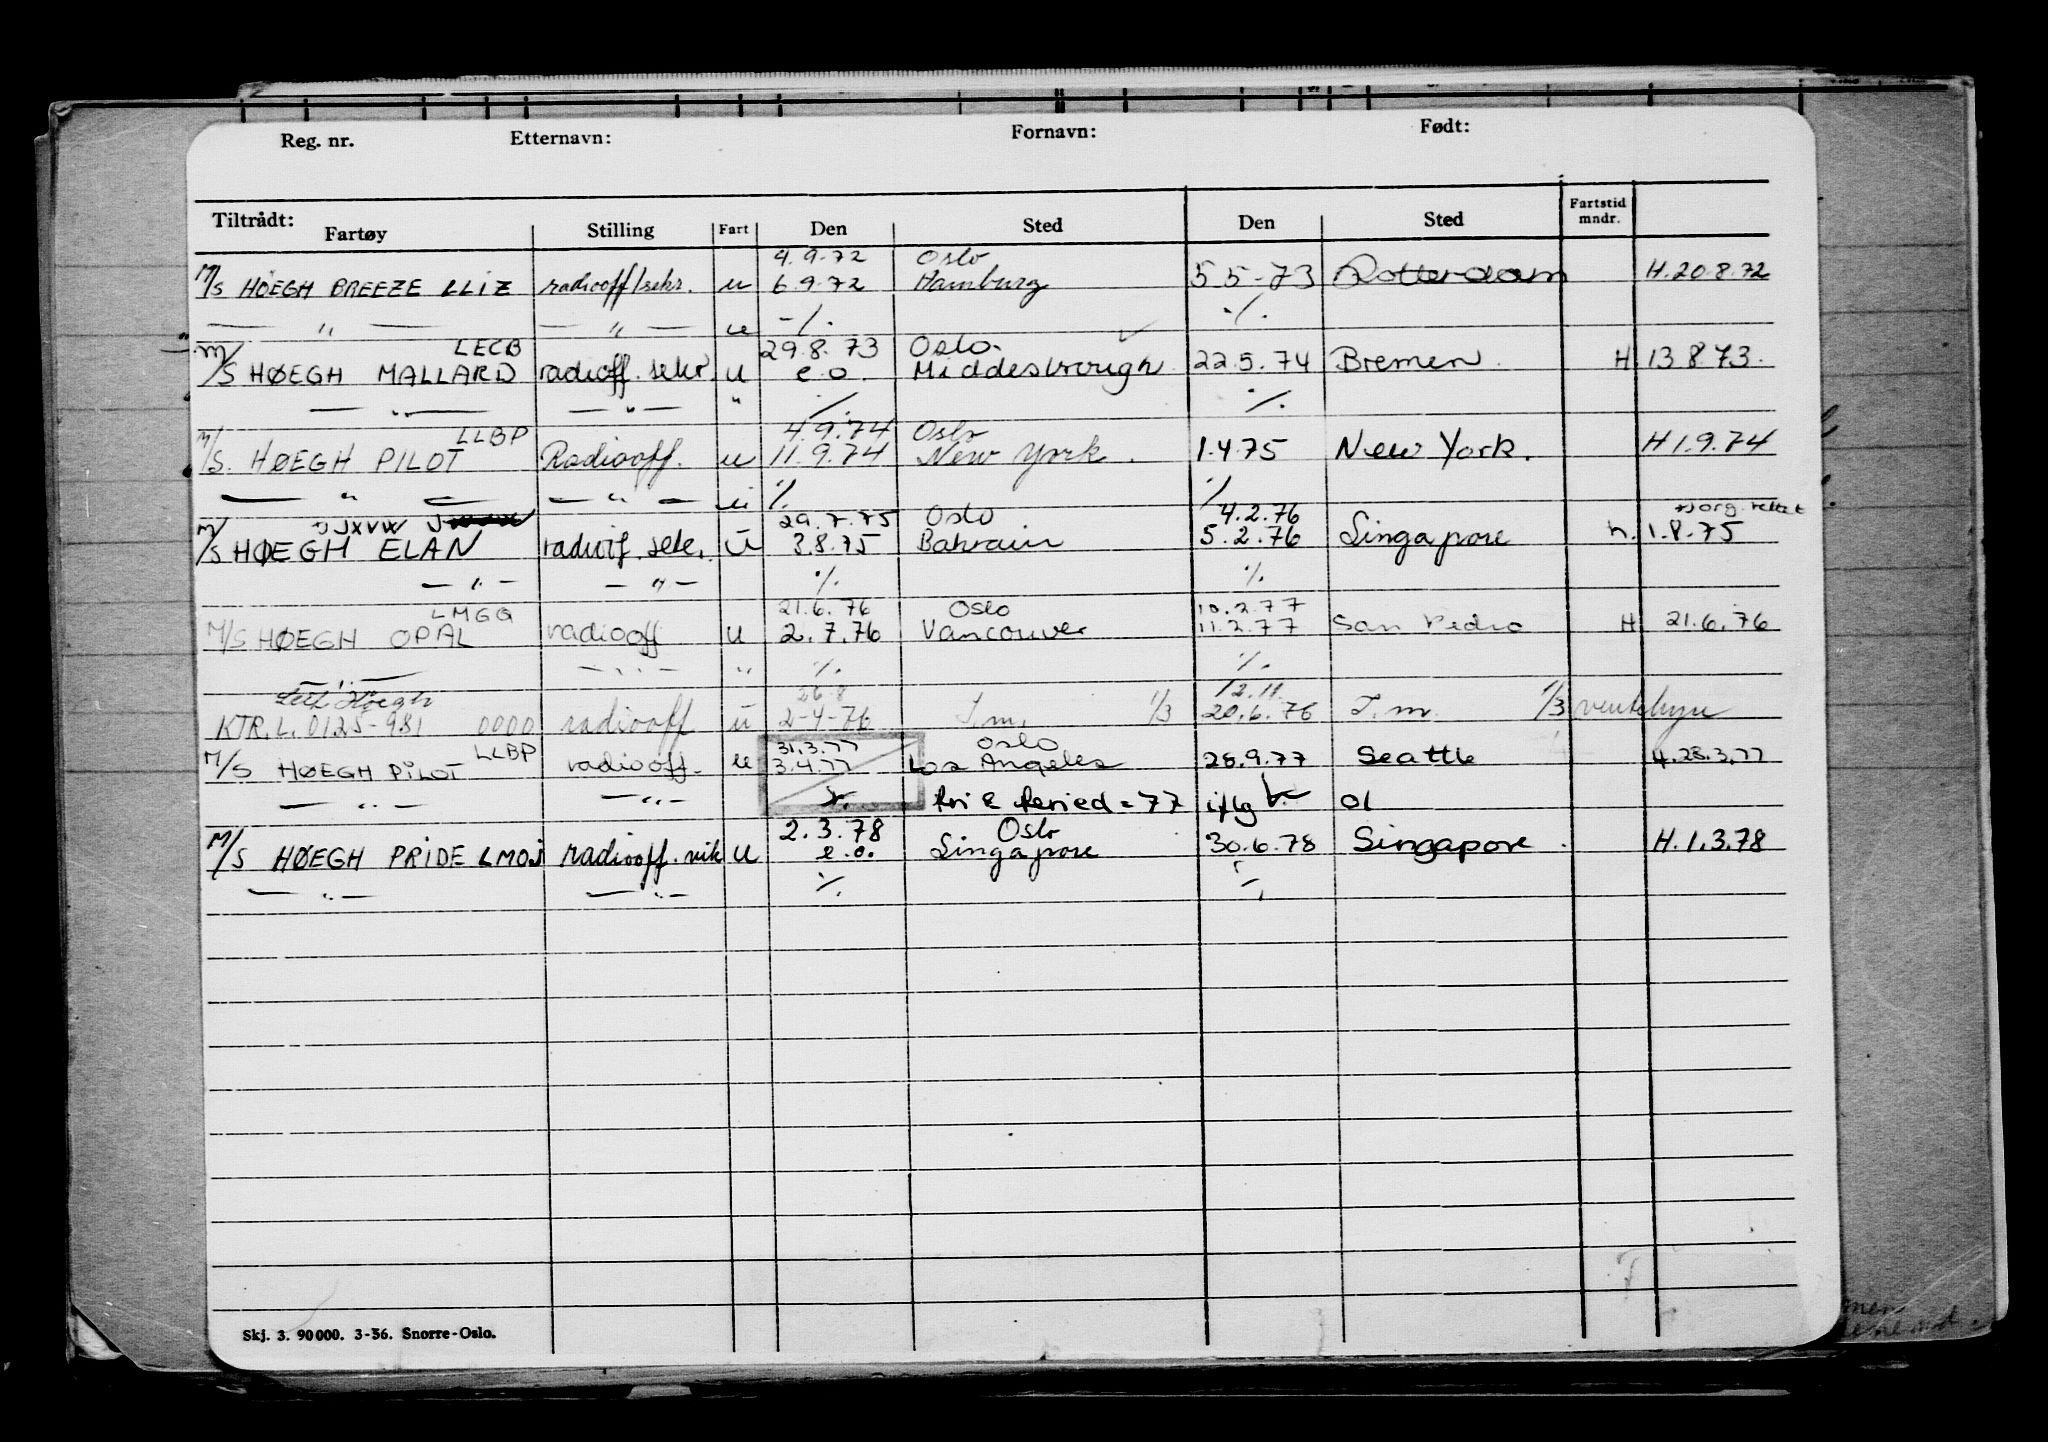 Reg. nr. Etternavn: Fornavn: Født:
Tiltrådt:
Fartøy Stilling Fart Den Sted Den Sted Fartstid mndr.
4.9.72 Oslo
M/S HÖEGH BREEZE LLIZ radiooff/sekr. u 6.9.72 Hamburg 5.5-73 Rotterdam H.20.8.72
— " — — " — u -/. ./.
LECB 29.8.73 Oslo.
M/S HØEGH MALLARD radioff. sekr. u e.o. Middesbrough 22.5.74 Bremen. H 13.8.73.
— " — — " — " ./. ./.
LLBP 4.9.74 Oslo
M/S. HØEGH PILOT Radiooff. u 11.9.74 New York. 1.4.75 New York. H 1.9.74
— " — — " — u ./. ./.
JXVW 29.7.75 Oslo 4.2.76
M/S HØEGH ELAN radiotf. sekr. u 3.8.75 Bahrain 5.2.76 Singapore h. 1.8.75
— " — — " — ./. ./.
LMGQ 21.6.76 Oslo 10.2.77
M/S HØEGH OPAL radiooff u 2.7.76 Vancouver 11.2.77 San Pedro H 21.6.76
— " — — " — " ./. ./.
Leif Höegh 26.8 12.11.
KTR.L.0125-981 0000 radiooff u 2-4-76 T.m. 1/3 20.6.76 T.m. 1/3 ventehyre
LLBP 31.3.77 Oslo
M/S HØEGH PILOT radiooff. u 3.4.77 Los Angeles 28.9.77 Seattle 4.28.3.77
— " — — " — ./. fri e feried = 77 iflg Ol
2.3.78 Oslo
M/S HØEGH PRIDE LMOJ radiooff. vik u e.o. Singapore 30.6.78 Singapore. H.1.3.78
— " — — " — ./. ./.
Skj. 3. 90000. 3-56. Snorre-Oslo.